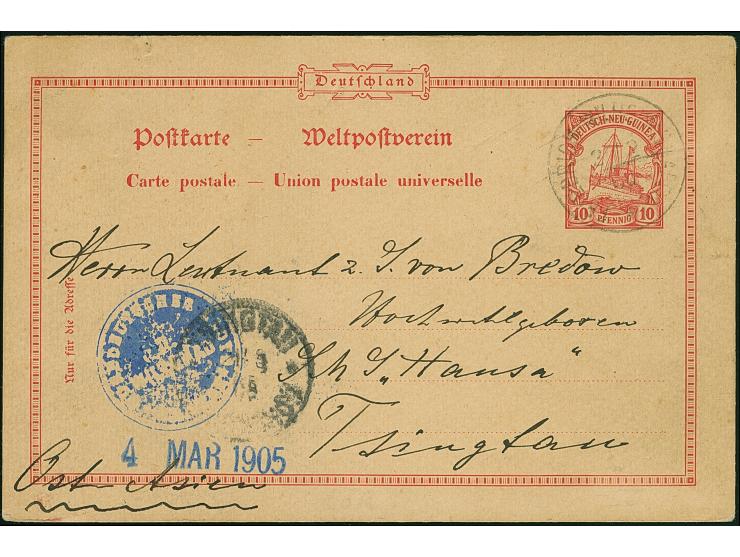 Deutschland
Postkarte — Weltpostverein
Carte postale — Union postale universelle
DEUTSCH-NEU-GUINEA
10 PFENNIG 10
Herrn Leutnant z. S. von Bredow
Hochwohlgeboren
S.M.S. „Hansa"
Tsingtau
Nur für die Adresse
TSINGTAU
4 MAR 1905
Ost-Asien